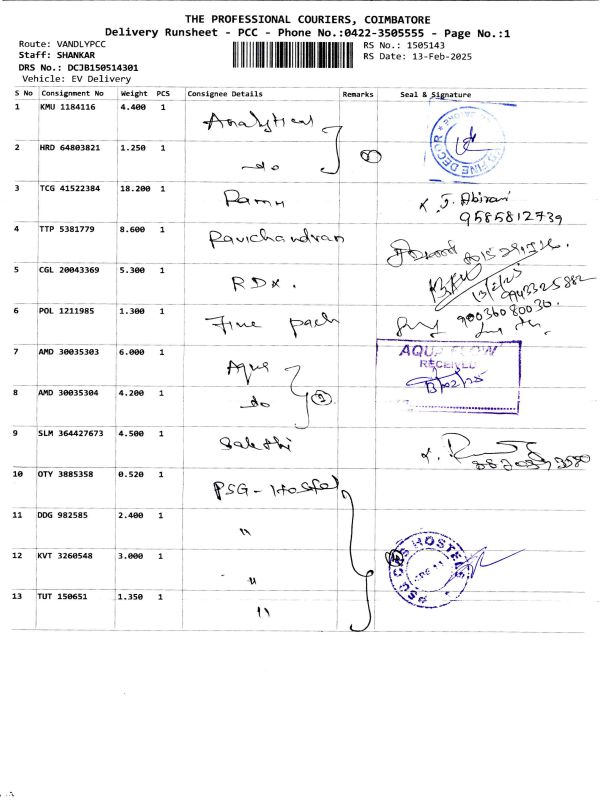 THE PROFESSIONAL COURIERS, COIMBATORE
Delivery Runsheet - PCC - Phone No.:0422-3505555 - Page No.:1
Route: VANDLYPCC
RS No.: 1505143
Staff: SHANKAR
RS Date: 13-Feb-2025
DRS No.: DCJB150514301
Vehicle: EV Delivery
S No Consignment No Weight PCS Consignee Details Remarks Seal & Signature
1 KMU 1184116 4.400 1 Analytical
2 HRD 64803821 1.250 1 -do
FINE DECOR
3 TCG 41522384 18.200 1 Ramu J. Abirami
9585812739
4 TTP 5381779 8.600 1 Ravichandran
5 CGL 20043369 5.300 1 RDX.
13/2/25
6 POL 1211985 1.300 1 Fine pack
9003680030.
7 AMD 30035303 6.000 1 Aqua
AQUA FLOW
RECEIVED
13/02/25
8 AMD 30035304 4.200 1 -do
9 SLM 364427673 4.500 1 Sakthi
10 OTY 3885358 0.520 1 PSG - Hostel
11 DDG 982585 2.400 1 "
12 KVT 3260548 3.000 1 "
HOSTELS
13 TUT 150651 1.350 1 "